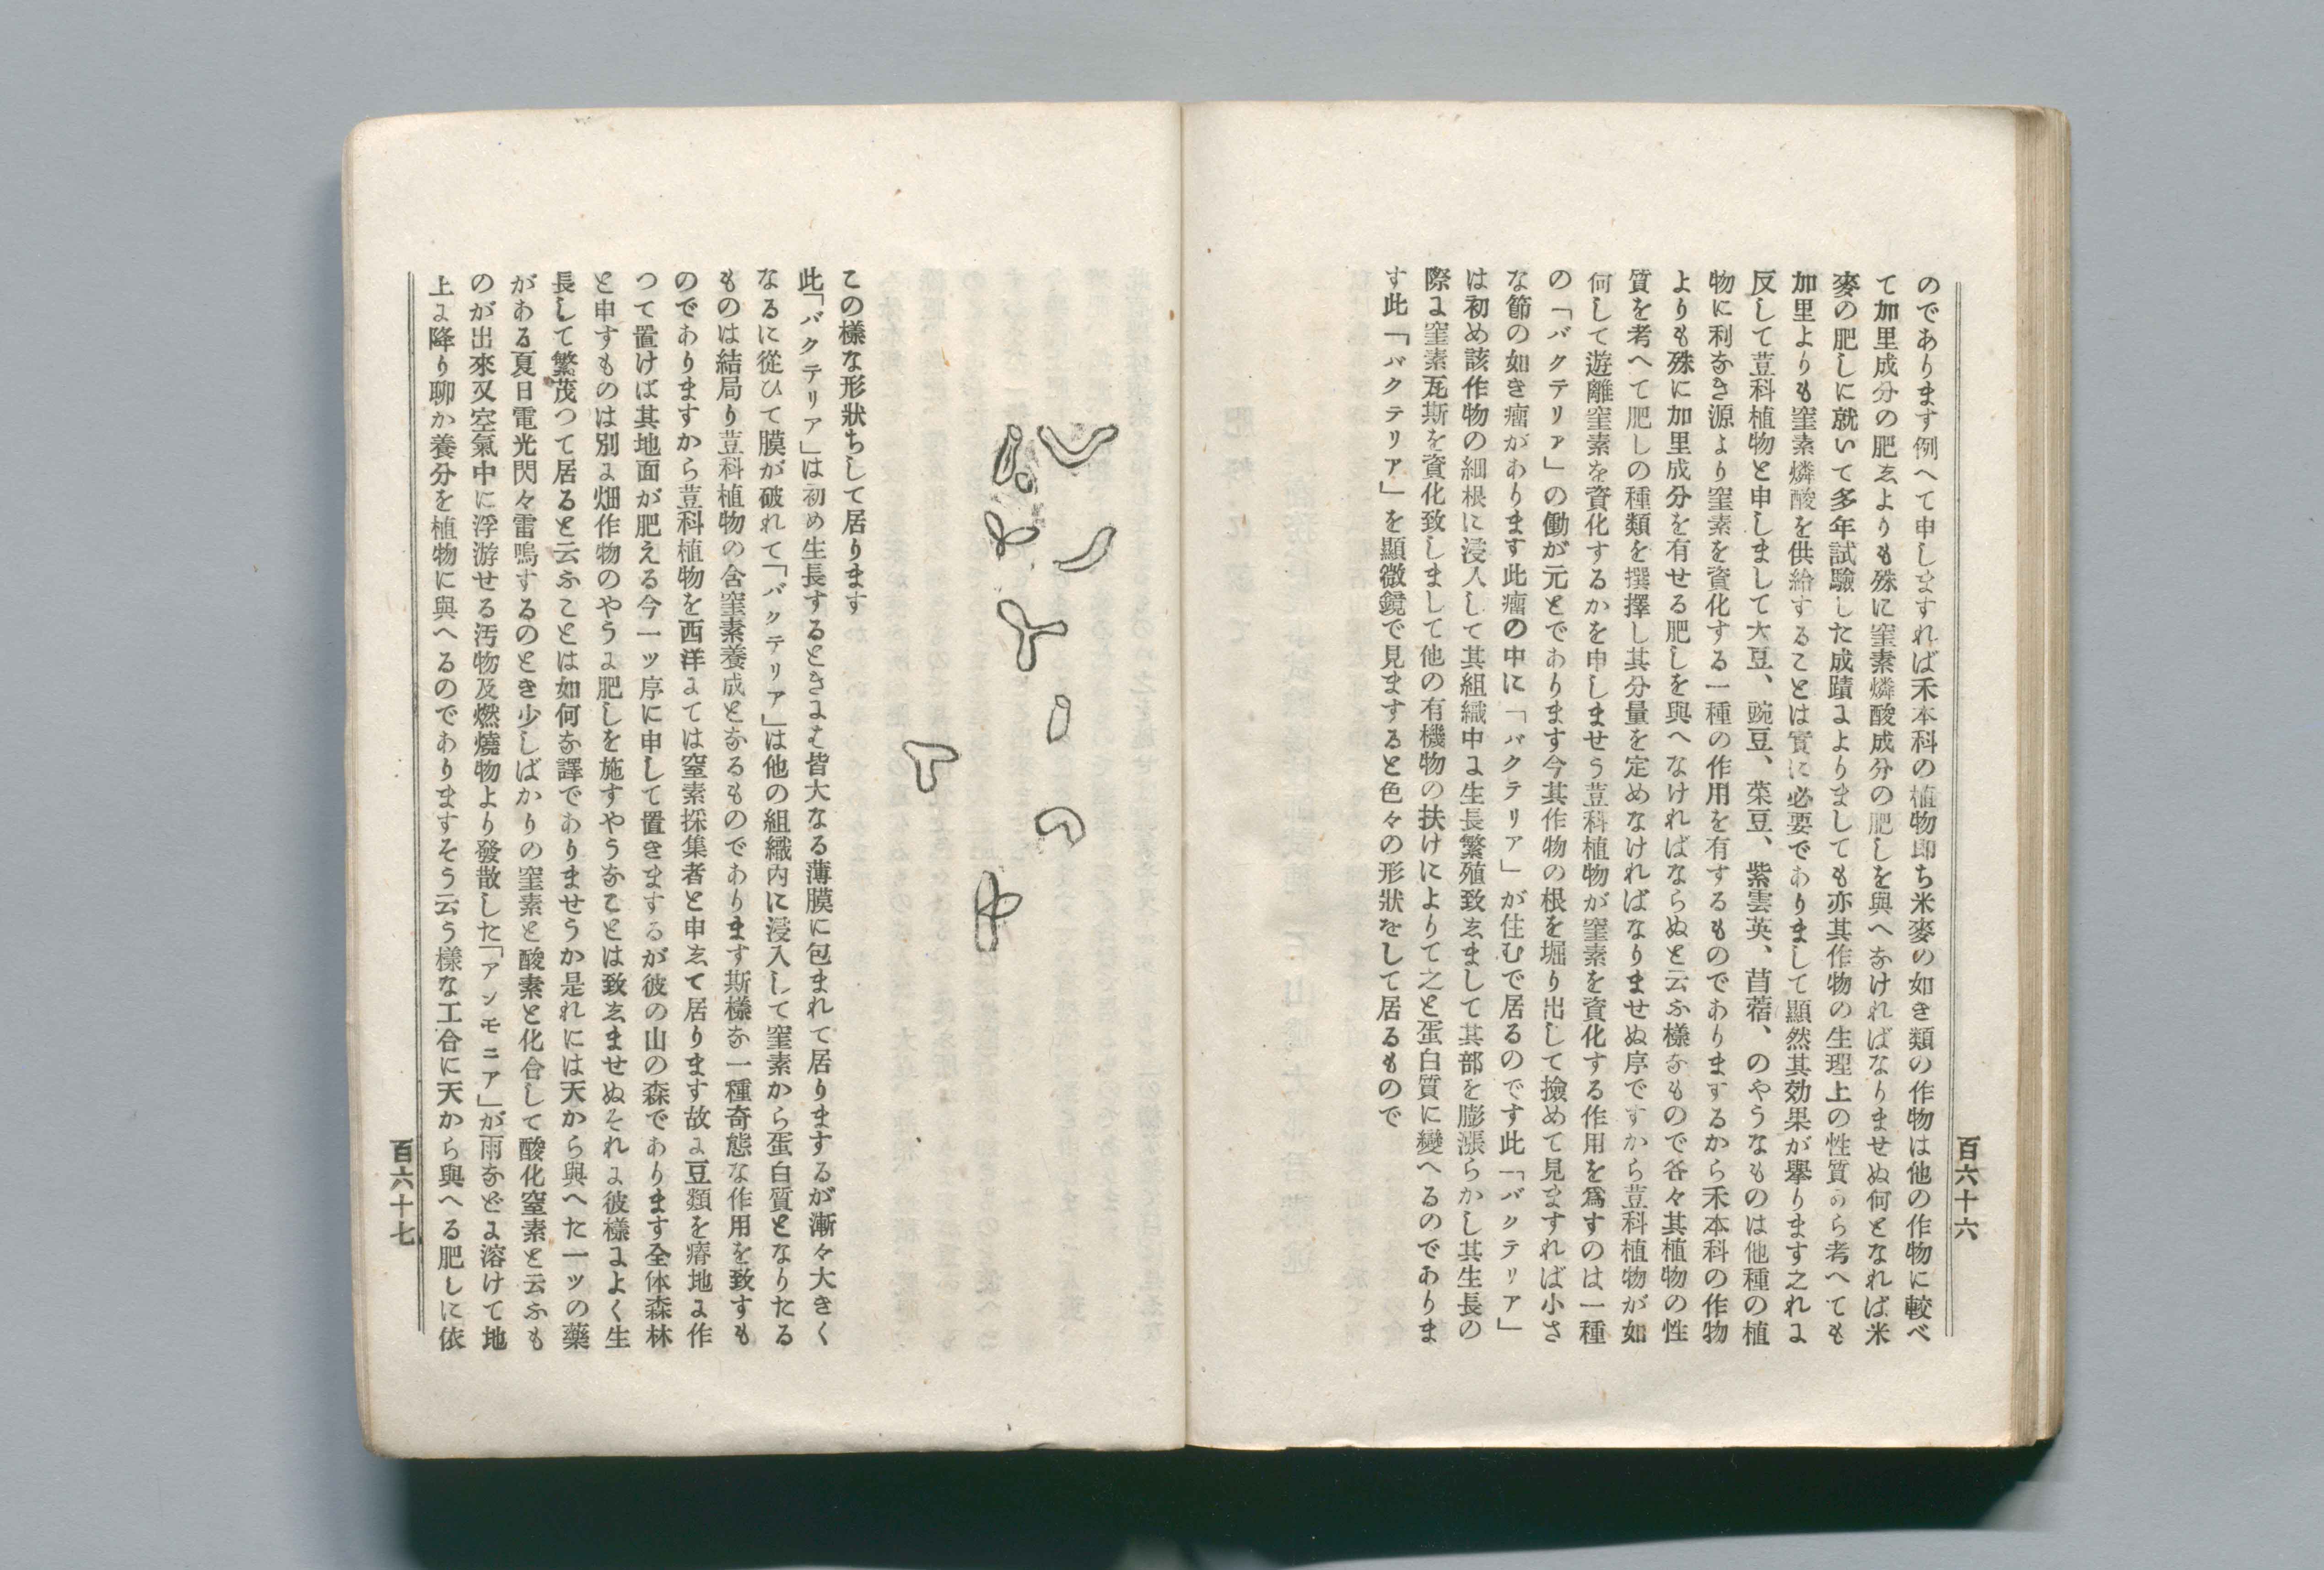 百六十六
のであります例へて申しますれば禾本科の植物即ち米麥の如き類の作物は他の作物に較べ
て加里成分の肥ゑよりも殊に窒素燐酸成分の肥しを與へなければなりませぬ何となれば米
麥の肥しに就いて多年試驗した成蹟によりましても亦其作物の生理上の性質から考へても
加里よりも窒素燐酸を供給することは實に必要でありまして顯然其効果が擧ります之れに
反して荳科植物と申しまして大豆、豌豆、菜豆、紫雲英、苜蓿、のやうなものは他種の植
物に利なき源より窒素を資化する一種の作用を有するものでありまするから禾本科の作物
よりも殊に加里成分を有せる肥しを與へなければならぬと云ふ樣なもので各々其植物の性
質を考へて肥しの種類を撰擇し其分量を定めなければなりませぬ序ですから荳科植物が如
何して遊離窒素を資化するかを申しませう荳科植物が窒素を資化する作用を爲すのは一種
の「バクテリア」の働が元とであります今其作物の根を堀り出して撿めて見ますれば小さ
な節の如き瘤があります此瘤の中に「バクテリア」が住むで居るのです此「バクテリア」
は初め該作物の細根に浸人して其組織中に生長繁殖致ゑまして其部を膨漲らかし其生長の
際に窒素瓦斯を資化致しまして他の有機物の扶けによりて之と蛋白質に變へるのでありま
す此「バクテリア」を顯微鏡で見ますると色々の形狀をして居るもので
この樣な形狀ちして居ります
此「バクテリア」は初め生長するときには皆大なる薄膜に包まれて居りまするが漸々大きく
なるに從ひて膜が破れて「バクテリア」は他の組織内に浸入して窒素から蛋白質となりたる
ものは結局り荳科植物の含窒素養成となるものであります斯樣な一種奇態な作用を致すも
のでありますから荳科植物を西洋にては窒素採集者と申ゑて居ります故に豆類を瘠地に作
つて置けば其地面が肥える今一ッ序に申して置きまするが彼の山の森であります全体森林
と申すものは別に畑作物のやうに肥しを施すやうなことは致ゑませぬそれに彼樣によく生
長して繁茂つて居ると云ふことは如何な譯でありませうか是れには天から與へた一ッの藥
がある夏日電光閃々雷鳴するのとき少しばかりの窒素と酸素と化合して酸化窒素と云ふも
のが出來又空氣中に浮游せる汚物及燃燒物より發散した「アンモニア」が雨などに溶けて地
上に降り聊か養分を植物に與へるのでありますそう云う樣な工合に天から與へる肥しに依
百六十七